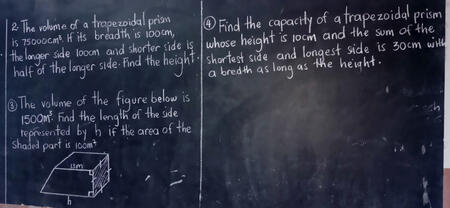 2. The volume of a trapezoidal prism
is 75000cm³. if its breadth is 100cm,
the longer side 100cm and shorter side is
half of the longer side. Find the height.
③ The volume of the figure below is
1500m³. Find the length of the side
represented by h if the area of the
Shaded part is 100m²
13m
h
④ Find the capacity of a trapezoidal prism
whose height is 10cm and the sum of the
shortest side and longest side is 30cm with
a bredth as long as the height.